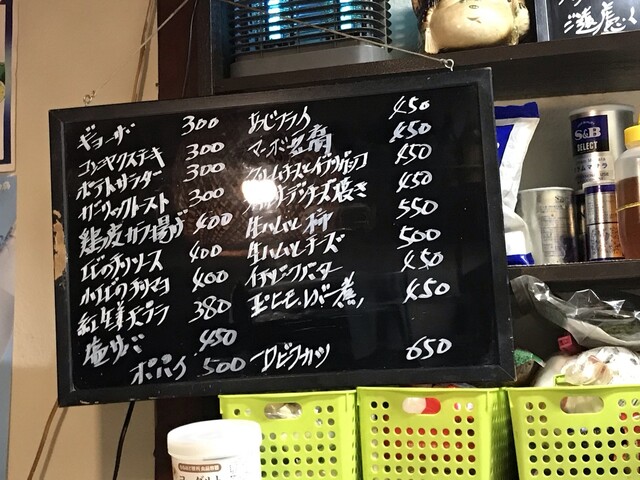 ギョーザ 300
コンニャクステーキ 300
ポテトサラダー 300
ガーリックトースト 300
鶏皮カラ揚げ 400
エビのチリソース 400
小エビのチリマヨ 400
紅生姜天プラ 380
塩サバ 450
ポパイ 500
あじフライ 450
マーボー豆腐 450
クリームチーズとイブリガッコ 450
チーズ焼き 450
生ハムと柿 550
生ハムとチーズ 500
バター 450
玉ヒモ、レバー煮 450
一口ビフカツ 650
ご遠慮
S&B
SELECT